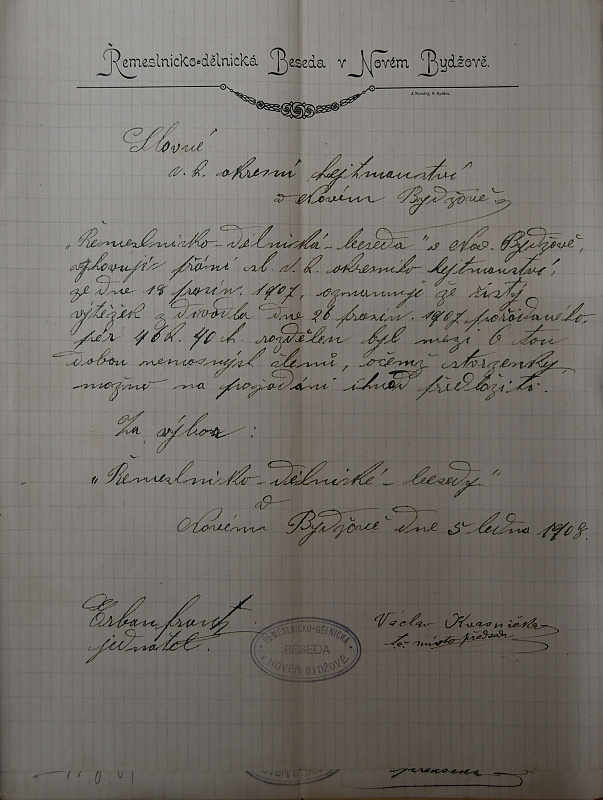 Řemeslnicko-dělnická Beseda v Novém Bydžově.
Slovné
c. k. okresní hejtmanství
v Novém Bydžově
„Řemeslnicko-dělnická-beseda“ v Nov. Bydžově,
vyhovujíc přání sl. c. k. okresního hejtmanství,
ze dne 18 prosin. 1907, oznamuje že čistý
výtěžek z divadla dne 26 prosin. 1907 pořádaného,
per 46 k. 40 h. rozdělen byl mezi 6 tou
dobou nemocných členů, očemž stvrzenky
možno na požádání ihned předložiti.
Za výbor:
„Řemeslnicko-dělnické-besedy“
v
Novém Bydžově dne 5 ledna 1908.
Erban
jednatel.
Václav Kvasnička
místo předseda
ŘEMESLNICKO-DĚLNICKÁ
BESEDA
NOVÉM BYDŽOVĚ